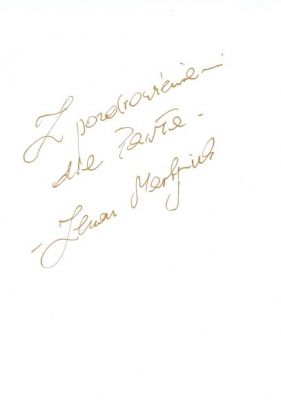 Z pozdrowieniami
dla Pawła -
- Zenon Martyniuk